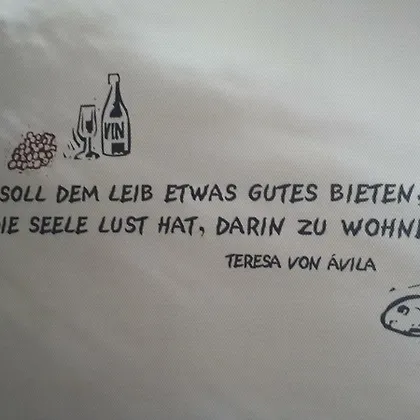 VIN
SOLL DEM LEIB ETWAS GUTES BIETEN,
IE SEELE LUST HAT, DARIN ZU WOHNE
TERESA VON ÁVILA